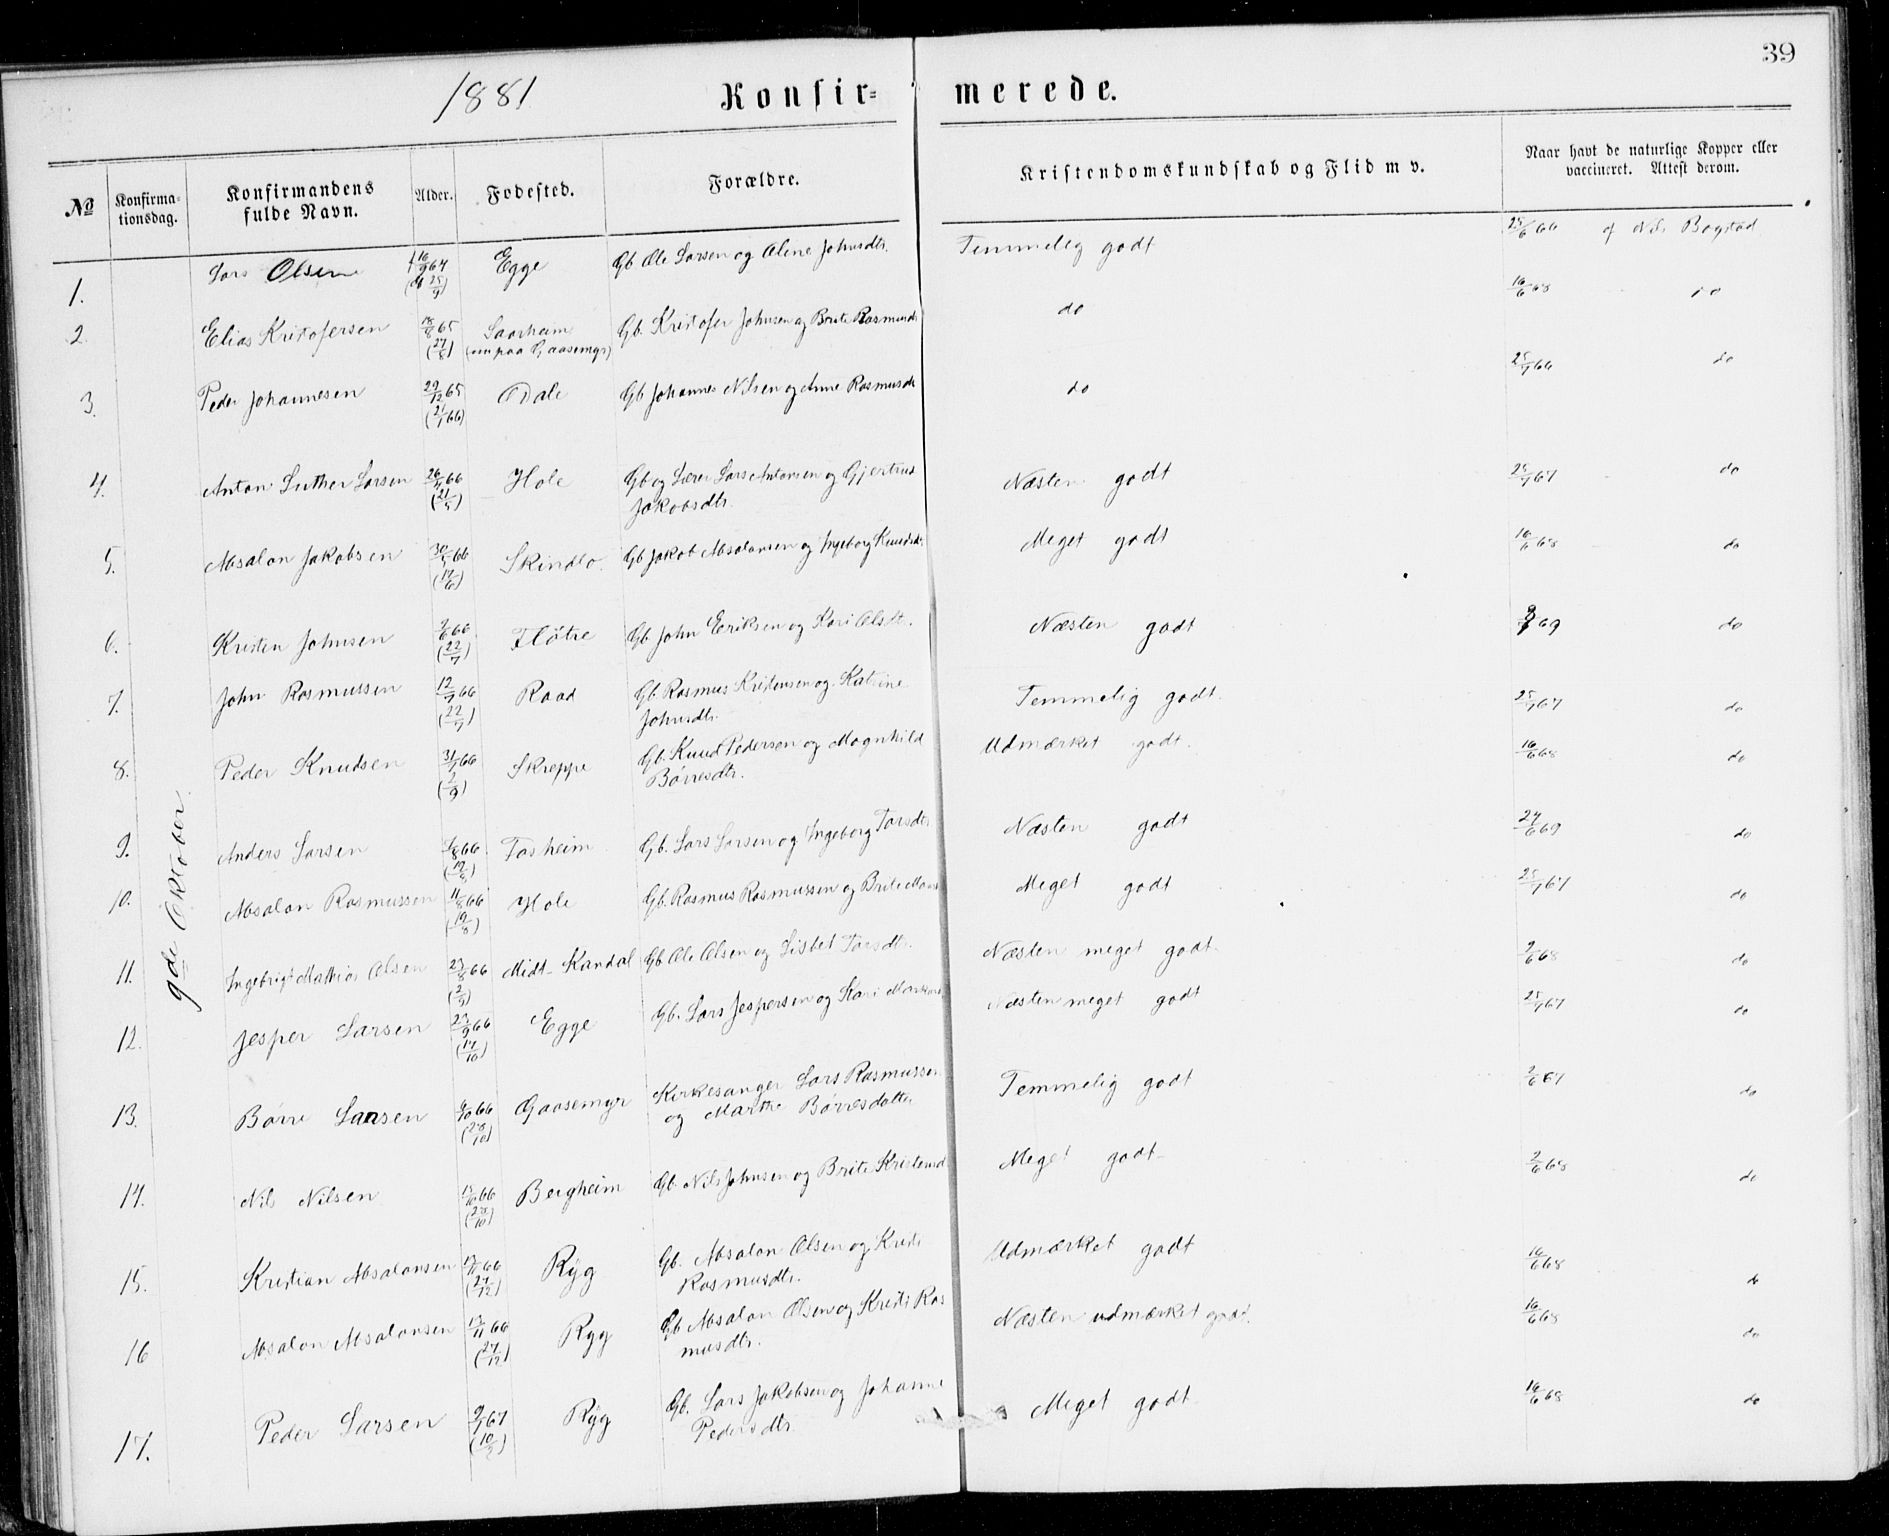 39
1881 Konfir= merede.
№ Konfirma-tionsdag. Konfirmandens fulde Navn. Alder. Fødested. Forældre. Kristendomskundskab og Flid m v. Naar havt de naturlige Kopper eller vaccineret. Attest derom.
9de Oktober
1. Lars Olsen 16/9 64 Egge Gb Ole Larsen og Oline Johnsdtr. Temmelig godt 25/6 66 af Nils Bogstad
(25/9)
2. Elias Kristofersen 18/8 65 Saarheim Gb. Kristofer Johnsen og Brite Rasmusdt do 16/6 68 do
(27/8) (nu paa Gaasemyr)
3. Peder Johannesen 29/12 65 Dale Gb Johannes Nilsen og Anne Rasmusdt do 25/7 66 do
(21/1 66)
4. Anton Luther Larsen 26/4 66 Hole Gb og Lærer Lars Antonsen og Gjertrud Næsten godt 25/7 67 do
(21/5) Jakobsdtr.
5. Absalon Jakobsen 30/5 66 Skindlo Gb Jakob Absalonsen og Ingeborg Knudsdt. Meget godt 16/6 68 do
(17/6)
6. Kristen Johnsen 2/6 66 Fløtre Gb John Eriksen og Kari Olsdt. Næsten godt 69 do
(22/7)
7. John Rasmussen 12/7 66 Raad Gb. Rasmus Kristensen og Katrine Temmelig godt. 25/7 67 do
(22/7) Johnsdtr.
8. Peder Knudsen 31/7 66 Skreppe Gb. Knud Pedersen og Magnhild Udmærket godt. 16/6 68 do
(2/9) Børresdtr.
9. Anders Larsen 4/8 66 Fosheim Gb. Lars Larsen og Ingeborg Larsdtr Næsten godt 24/6 69 do
(19/8)
10. Absalon Rasmussen 11/8 66 Hole Gb. Rasmus Rasmussen og Brite Monsd Meget godt 25/7 67 do
(19/8)
11. Ingebrigt Mathias Olsen 23/8 66 Midt-Kandal Gb Ole Olsen og Lisbet Larsdtr. Næsten meget godt 2/6 68 do
(2/9)
12. Jesper Larsen 23/9 66 Egge Gb. Lars Jespersen og Kari Næsten meget godt 25/7 67 do
(14/10)
13. Børre Larsen 6/10 66 Gaasemyr Kirkesanger Lars Rasmussen Temmelig godt 2/6 67 do
(28/10) og Marthe Børresdatter
14. Nils Nilsen 15/10 66 Bergheim Gb. Nils Johnsen og Brite Kristensd Meget godt 2/6 68 do
(28/10)
15. Kristian Absalonsen 13/11 66 Ryg Gb. Absalon Olsen og Kristi Udmærket godt 16/6 68 do
(27/12) Rasmusdtr.
16 Absalon Absalonsen 13/11 66 Ryg Gb Absalon Olsen og Kristi Ras Næsten udmærket godt. 16/6 68 do
(27/12) musdtr.
17. Peder Larsen 9/1 67 Ryg Gb. Lars Jakobsen og Johanne Meget godt 16/6 68 do
Pedersdtr.